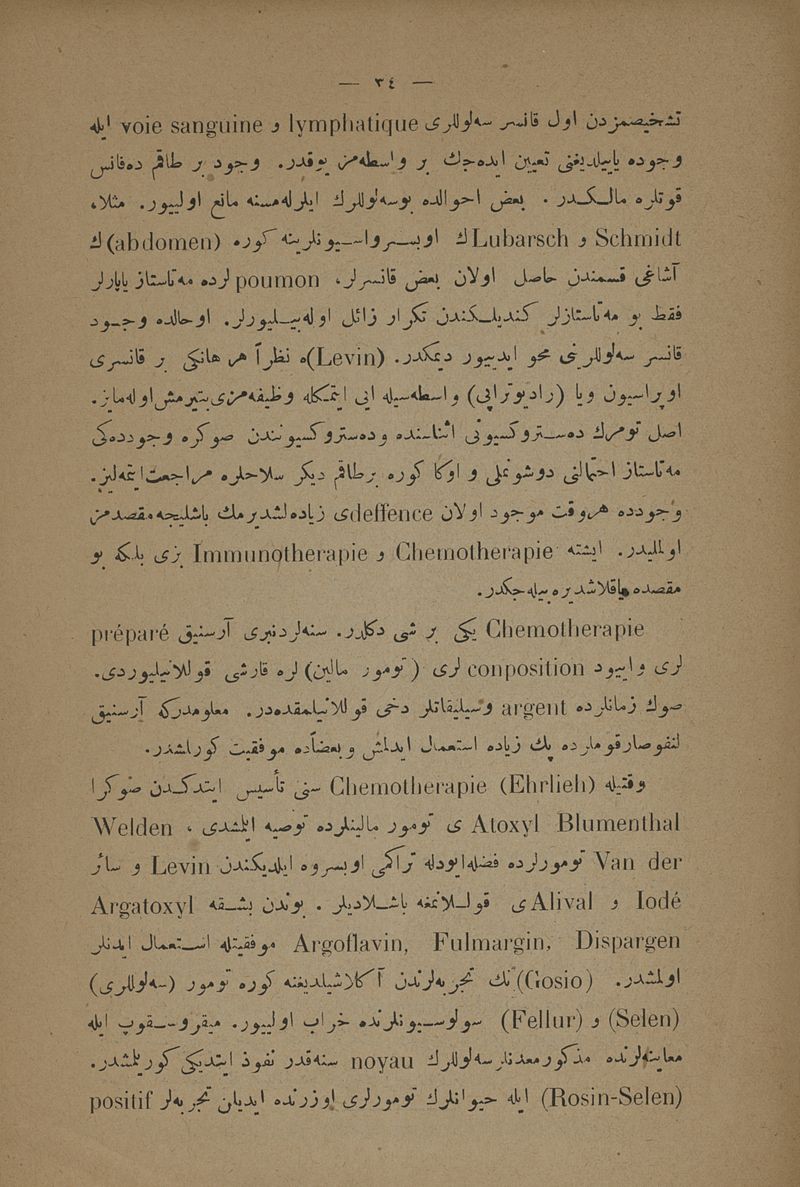 — ٣٤ —
تشخيصمزدن اول قانسر سه‌لولری lymphatique و voie sanguine ايله
وجوده ياييلديغنی تعيين ايده‌جك بر واسطه‌من يوقدر. وجود بر طاقم ده‌فانس
قوتلره مالكدر . بعض احوالده بوسه‌لوللرك ايلرله‌مسنه مانع اوليور. مثلا،
Schmidt و Lubarsch ك اوبسرواسيونلرينه كوره (abdomen) ك
آشاغی قسمندن حاصل اولان بعض قانسرلر، poumon لرده مه‌تاستاز ياپارلر
فقط بو مه‌تاستازلر كنديلكندن تكرار زائل اوله‌بيليورلر. اوحالده وجود
قانسر سه‌لوللرينی محو ايدييور ديمكدر. (Levin)ه نظراً هر هانكی بر قانسری
اوپراسيون ويا (راديوتراپی) واسطه‌سيله ايی ايتمكله وظيفه‌مزی بتيرمش اوله‌مايز.
اصل تومورك ده‌ستروكسيونی اثناسنده وده‌ستروكسيوندن صوكره وجودده‌كی
مه‌تاستاز احتمالنی دوشونملی و اوكا كوره برطاقم ديكر سلاحلره مراجعت ايتمه‌ليز.
وجودده هروقت موجود اولان deffenceی زياده‌لشديرمك باشليجه مقصدمز
اولمليدر. ايشته Chemotherapie و Immunotherapie بزی بلكه بو
مقصده ياقلاشديره بيله‌جكدر.
Chemotherapie يكی بر شی دكلدر. سنه‌لردنبری آرسنيق préparé
لری وايود conposition لری (تومور مالين) لره قارشی قوللانيليوردی.
صوك زمانلرده argent وسيليقاتلر دخی قوللانيلمقده‌در. معلومدركه آرسنيق
لنفوصارقوملرده پك زياده استعمال ايدلمش و بعضاًده موفقيت كورلمشدر.
وقتيله (Ehrlieh) Chemotherapie سنی تأسيس ايتدكدن صوكرا
Atoxyl Blumenthal ی تومور مالينلرده توصيه ايلمشدی . Welden
Van der تومورلرده فضله‌ايودله تراكمی اوبسروه ايلديكندن Levin و سائر
Iodé و Alival ی قوللانمغه باشلاديلر . بوندن بشقه Argatoxyl
Argoflavin, Fulmargin, Dispargen موفقيتله استعمال ايدنلر
اولمشدر. (Gosio) نك تجربه‌لرندن آكلاشيلديغنه كوره تومور (سه‌لوللری)
(Selen) و (Fellur) سولوسيونلرنده خراب اوليور. ميقروسقوب ايله
معاينه‌لرنده مذكور معدنلر سه‌لوللرك noyau سنه‌قدر نفوذ ايتديكی كورلمشدر.
(Rosin-Selen) ايله حيوانلرك تومورلری اوزرنده ايديلن تجربه‌لر positif